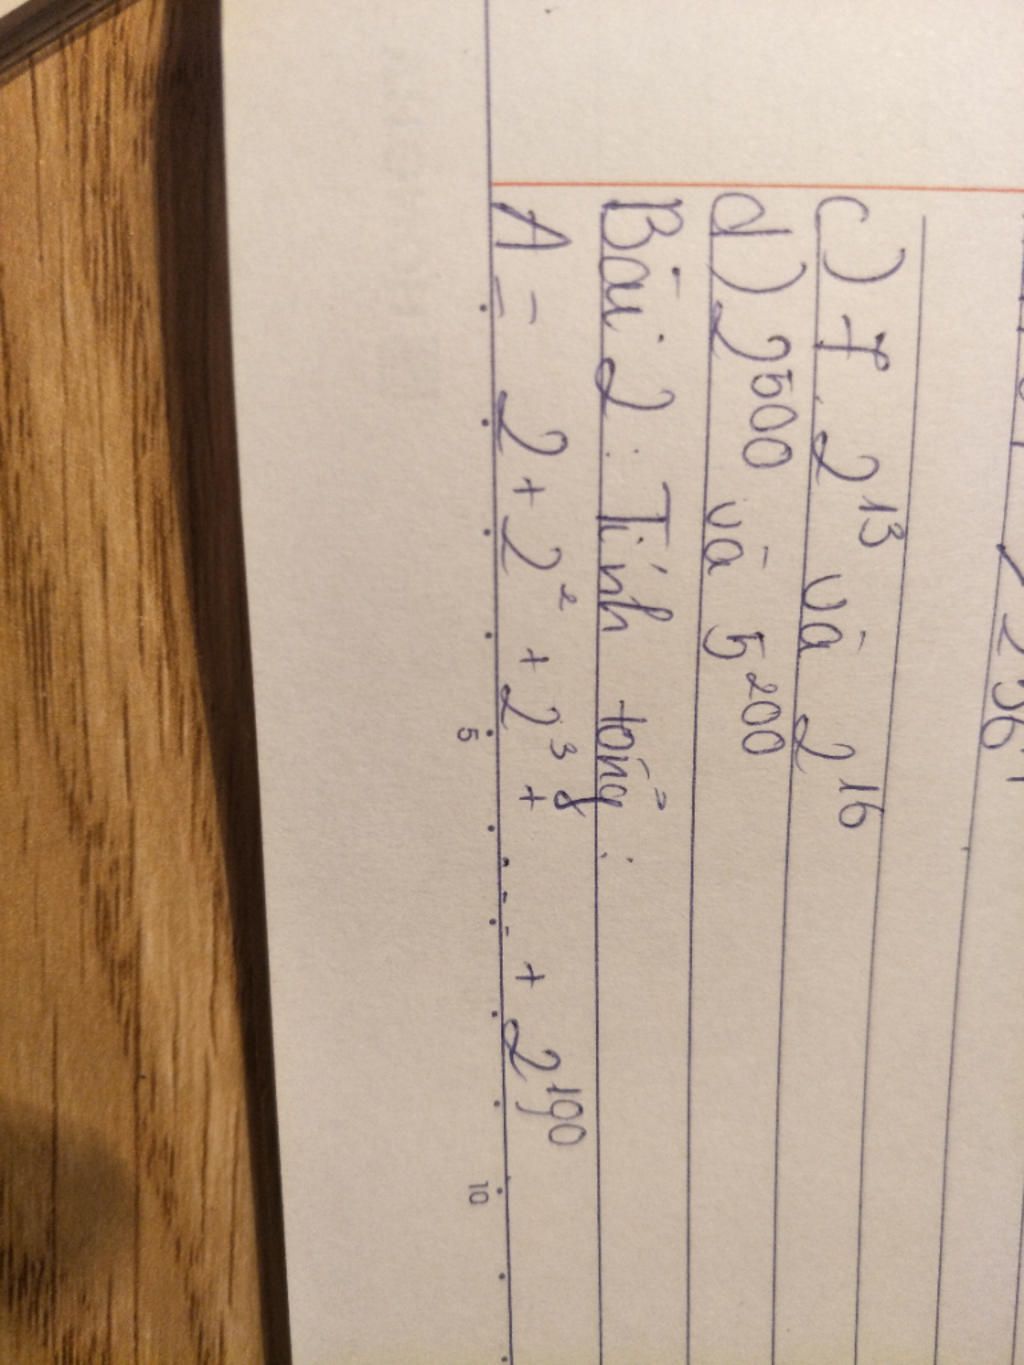 256
c) 7. 2¹³ và 2¹⁶
d) 2⁵⁰⁰ và 5²⁰⁰
Bài 2: Tính tổng:
A = 2 + 2² + 2³ + ... + 2¹⁹⁰
5 10